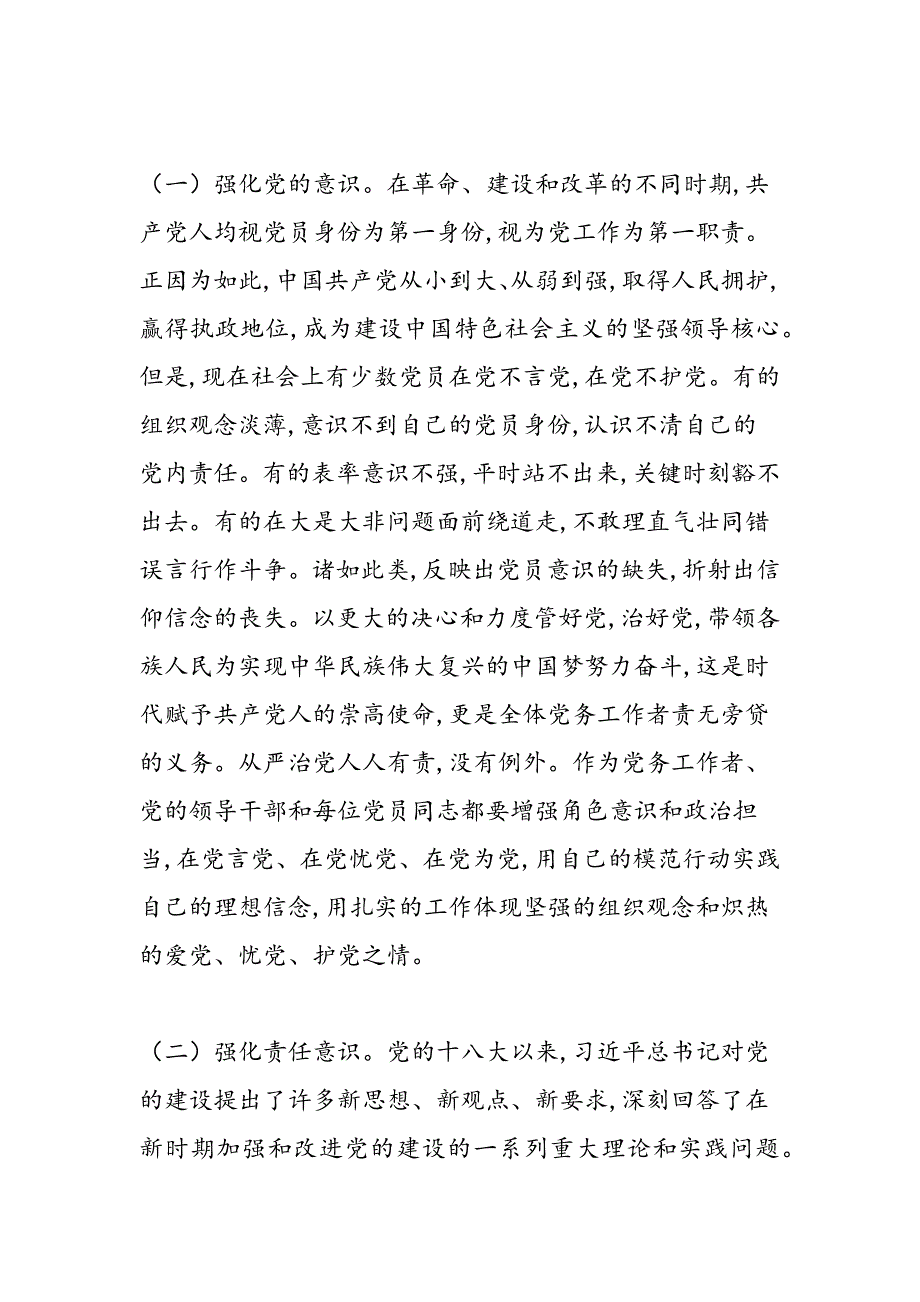 （一）强化党的意识。在革命、建设和改革的不同时期,共
产党人均视党员身份为第一身份,视为党工作为第一职责。
正因为如此,中国共产党从小到大、从弱到强,取得人民拥护,
赢得执政地位,成为建设中国特色社会主义的坚强领导核心。
但是,现在社会上有少数党员在党不言党,在党不护党。有的
组织观念淡薄,意识不到自己的党员身份,认识不清自己的
党内责任。有的表率意识不强,平时站不出来,关键时刻豁不
出去。有的在大是大非问题面前绕道走,不敢理直气壮同错
误言行作斗争。诸如此类,反映出党员意识的缺失,折射出信
仰信念的丧失。以更大的决心和力度管好党,治好党,带领各
族人民为实现中华民族伟大复兴的中国梦努力奋斗,这是时
代赋予共产党人的崇高使命,更是全体党务工作者责无旁贷
的义务。从严治党人人有责,没有例外。作为党务工作者、
党的领导干部和每位党员同志都要增强角色意识和政治担
当,在党言党、在党忧党、在党为党,用自己的模范行动实践
自己的理想信念,用扎实的工作体现坚强的组织观念和炽热
的爱党、忧党、护党之情。
（二）强化责任意识。党的十八大以来,习近平总书记对党
的建设提出了许多新思想、新观点、新要求,深刻回答了在
新时期加强和改进党的建设的一系列重大理论和实践问题。